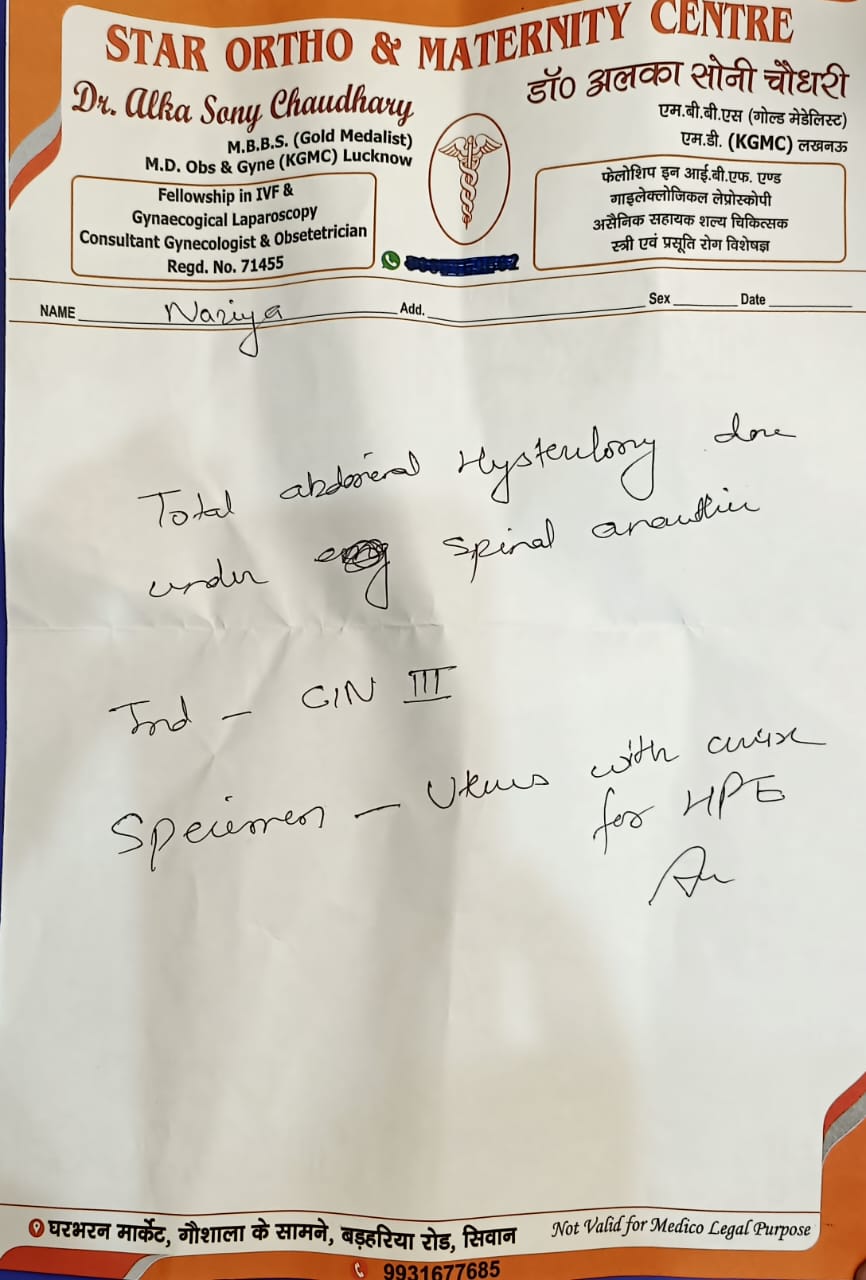 STAR ORTHO & MATERNITY CENTRE
Dr. Alka Sony Chaudhary
M.B.B.S. (Gold Medalist)
M.D. Obs & Gyne (KGMC) Lucknow
Fellowship in IVF &
Gynaecogical Laparoscopy
Consultant Gynecologist & Obsetetrician
Regd. No. 71455
डॉ० अलका सोनी चौधरी
एम.बी.बी.एस (गोल्ड मेडेलिस्ट)
एम.डी. (KGMC) लखनऊ
फेलोशिप इन आई.बी.एफ. एण्ड
गाइलेक्लोजिकल लेप्रोस्कोपी
असैनिक सहायक शल्य चिकित्सक
स्त्री एवं प्रसूति रोग विशेषज्ञ
NAME Naziya Add. Sex Date
Total abdominal Hysterectomy done
under spinal
Ind - CIN III
Specimen - Uterus with cervix
for HPE
घरभरन मार्केट, गौशाला के सामने, बड़हरिया रोड, सिवान
Not Valid for Medico Legal Purpose
9931677685